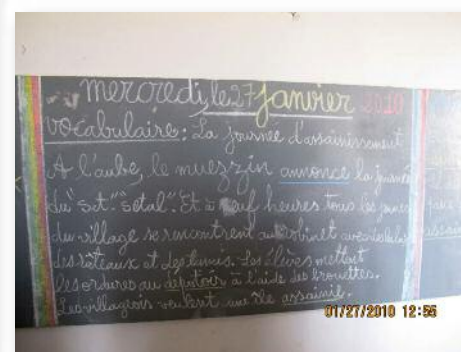 mercredi, le 27 janvier 2010
vocabulaire : La journée d'assainissement
A l'aube, le muezzin annonce la journée
du "set" "setal". Et à neuf heures tous les jeunes
du village se rencontrent au robinet avec des
des râteaux et des tamis. Les élèves mettent
les ordures au dépotoir à l'aide des brouettes.
Les villageois veulent une île assainie.
01/27/2010 12:55